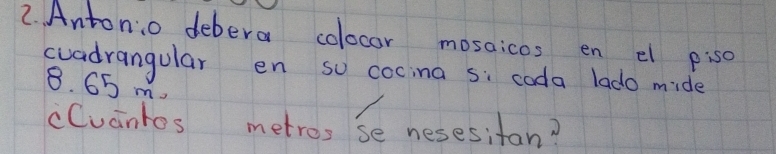 2. Antonio debera colocar mosaicos en el piso
cuadrangular en su cocina si cada lado mide
8.65 m.
¿Cuántos metros se nesesitan?